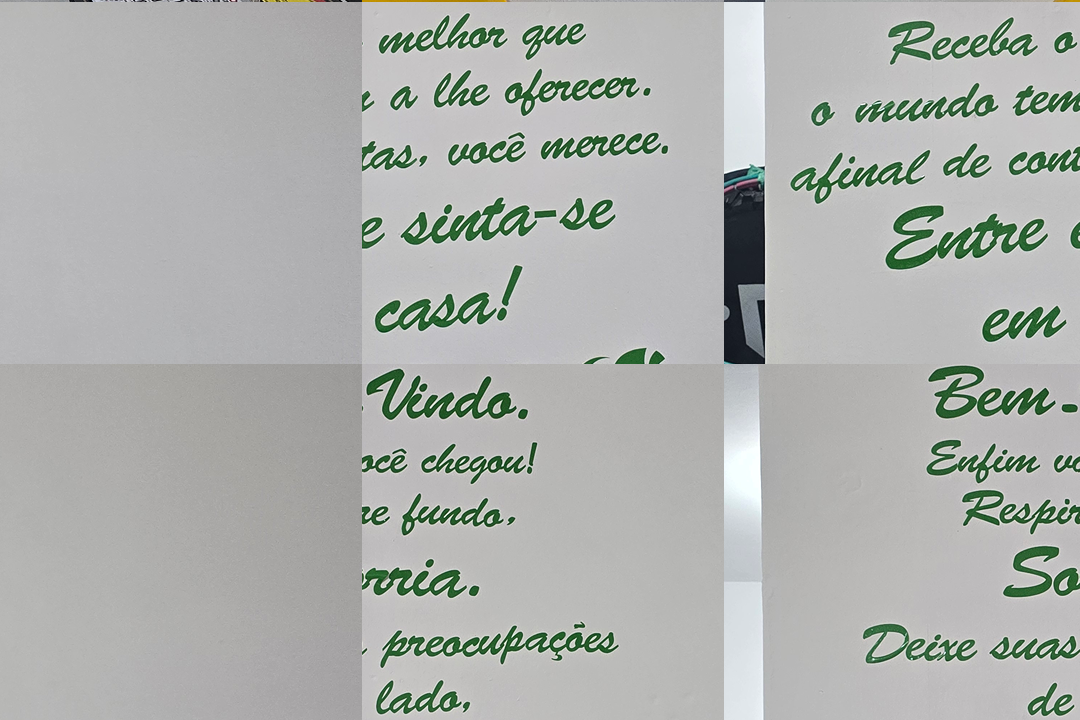 melhor que
a lhe oferecer.
tas, você merece.
e sinta-se
casa!
Receba o
o mundo tem
afinal de cont
Entre e
em
Vindo.
ocê chegou!
re fundo,
orria.
preocupações
lado,
Bem-
Enfim vo
Respir
So
Deixe suas
de